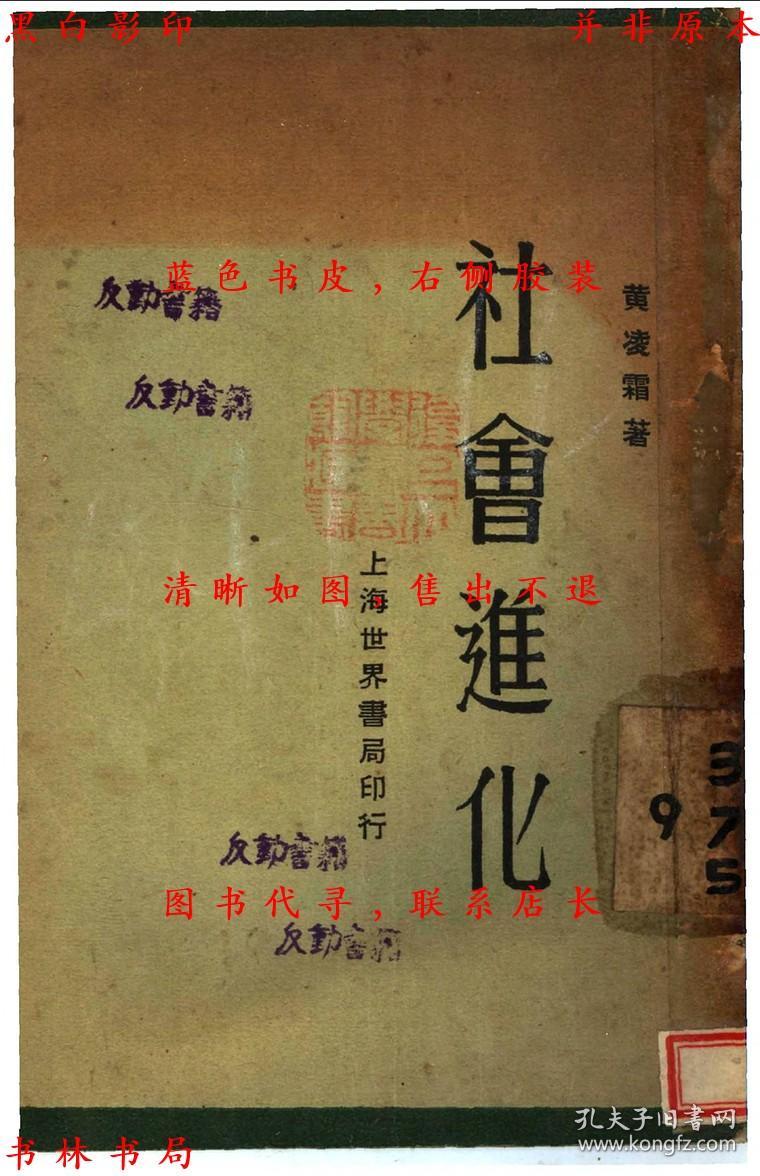 黑白影印
并非原本
黄凌霜著
社會進化
上海世界書局印行
蓝色书皮，右侧胶装
反動書籍
反動書籍
清晰如图，售出不退
反動書籍
图书代寻，联系店长
反動書籍
375
9
书林书局
孔夫子旧书网
www.kongfz.com